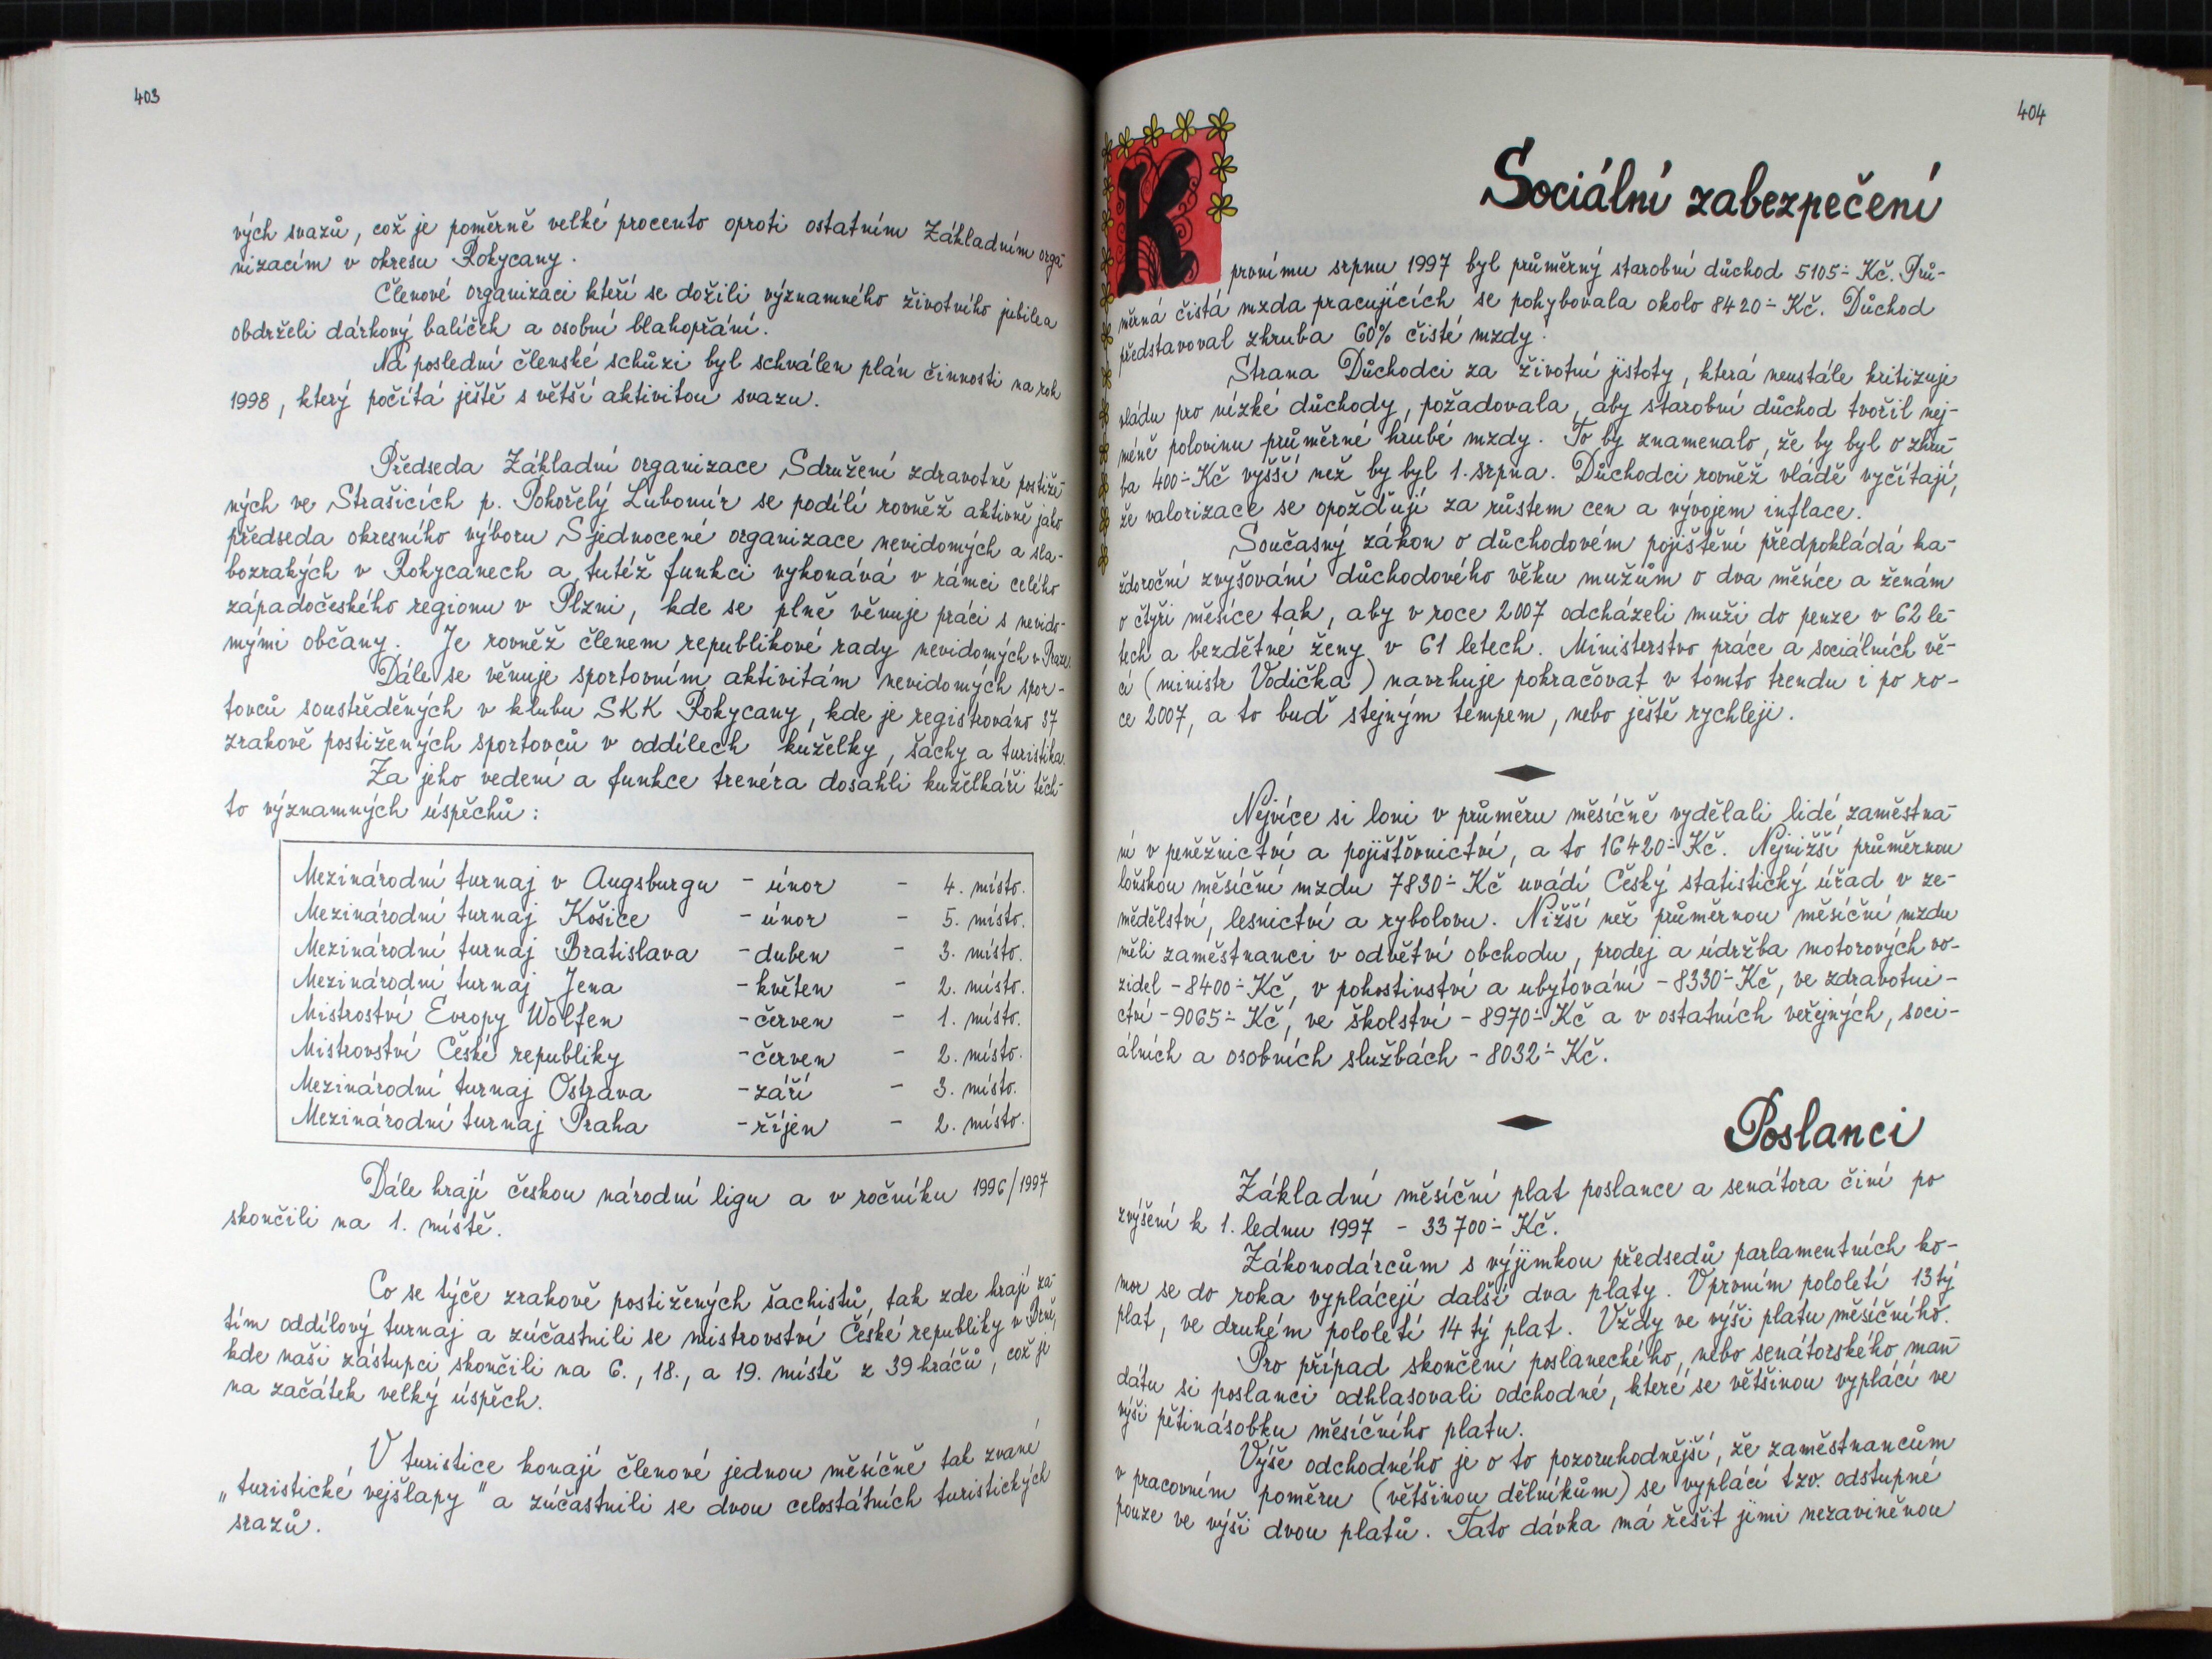 403
vých svazů, což je poměrně velké procento oproti ostatním Základním orga-
nizacím v okresu Rokycany.
Členové organizaci kteří se dožili významného životního jubilea
obdrželi dárkový balíček a osobní blahopřání.
Na poslední členské schůzi byl schválen plán činnosti na rok
1998, který počítá ještě s větší aktivitou svazu.
Předseda Základní organizace Sdružení zdravotně postiže-
ných ve Strašicích p. Pohořelý Lubomír se podílí rovněž aktivně jako
předseda okresního výboru Sjednocené organizace nevidomých a sla-
bozrakých v Rokycanech a tutéž funkci vykonává v rámci celého
západočeského regionu v Plzni, kde se plně věnuje práci s nevido-
mými občany. Je rovněž členem republikové rady nevidomých v Praze.
Dále se věnuje sportovním aktivitám nevidomých spor-
tovců soustředěných v klubu SKK Rokycany, kde je registrováno 37
zrakově postižených sportovců v oddílech kuželky, šachy a turistika.
Za jeho vedení a funkce trenéra dosáhli kuželkáři těch-
to významných úspěchů:
Mezinárodní turnaj v Augsburgu - únor - 4. místo.
Mezinárodní turnaj Košice - únor - 5. místo.
Mezinárodní turnaj Bratislava - duben - 3. místo.
Mezinárodní turnaj Jena - květen - 2. místo.
Mistroství Evropy Wolfen - červen - 1. místo.
Mistrovství České republiky - červen - 2. místo.
Mezinárodní turnaj Ostrava - září - 3. místo.
Mezinárodní turnaj Praha - říjen - 2. místo.
Dále hrají českou národní ligu a v ročníku 1996/1997
skončili na 1. místě.
Co se týče zrakově postižených šachistů, tak zde hrají za-
tím oddílový turnaj a zúčastnili se mistrovství České republiky v Brně,
kde naši zástupci skončili na 6., 18., a 19. místě z 39 hráčů, což je
na začátek velký úspěch.
V turistice konají členové jednou měsíčně tak zvané
„turistické vejšlapy" a zúčastnili se dvou celostátních turistických
srazů.
404
Sociální zabezpečení
K prvnímu srpnu 1997 byl průměrný starobní důchod 5105,- Kč. Prů-
měrná čistá mzda pracujících se pohybovala okolo 8420,- Kč. Důchod
představoval zhruba 60% čisté mzdy.
Strana Důchodci za životní jistoty, která neustále kritizuje
vládu pro nízké důchody, požadovala, aby starobní důchod tvořil nej-
méně polovinu průměrné hrubé mzdy. To by znamenalo, že by byl o zhru-
ba 400,- Kč vyšší než by byl 1. srpna. Důchodci rovněž vládě vyčítají,
že valorizace se opožďují za růstem cen a vývojem inflace.
Současný zákon o důchodovém pojištění předpokládá ka-
ždoroční zvyšování důchodového věku mužům o dva měsíce a ženám
o čtyři měsíce tak, aby v roce 2007 odcházeli muži do penze v 62 le-
tech a bezdětné ženy v 61 letech. Ministerstvo práce a sociálních vě-
cí (ministr Vodička) navrhuje pokračovat v tomto trendu i po ro-
ce 2007, a to buď stejným tempem, nebo ještě rychleji.
Nejvíce si loni v průměru měsíčně vydělali lidé zaměstna-
ní v peněžnictví a pojišťovnictví, a to 16420,- Kč. Nejnižší průměrnou
loňskou měsíční mzdu 7830,- Kč uvádí Český statistický úřad v ze-
mědělství, lesnictví a rybolovu. Nižší než průměrnou měsíční mzdu
měli zaměstnanci v odvětví obchodu, prodej a údržba motorových vo-
zidel - 8400,- Kč, v pohostinství a ubytování - 8330,- Kč, ve zdravotni-
ctví - 9065,- Kč, ve školství - 8970,- Kč a v ostatních veřejných, soci-
álních a osobních službách - 8032,- Kč.
Poslanci
Základní měsíční plat poslance a senátora činí po
zvýšení k 1. lednu 1997 - 33700,- Kč.
Zákonodárcům s výjimkou předsedů parlamentních ko-
mor se do roka vyplácejí další dva platy. V prvním pololetí 13tý
plat, ve druhém pololetí 14tý plat. Vždy ve výši platu měsíčního.
Pro případ skončení poslaneckého, nebo senátorského man-
dátu si poslanci odhlasovali odchodné, které se většinou vyplácí ve
výši pětinásobku měsíčního platu.
Výše odchodného je o to pozoruhodnější, že zaměstnancům
v pracovním poměru (většinou dělníkům) se vyplácí tzv. odstupné
pouze ve výši dvou platů. Tato dávka má řešit jimi nezaviněnou